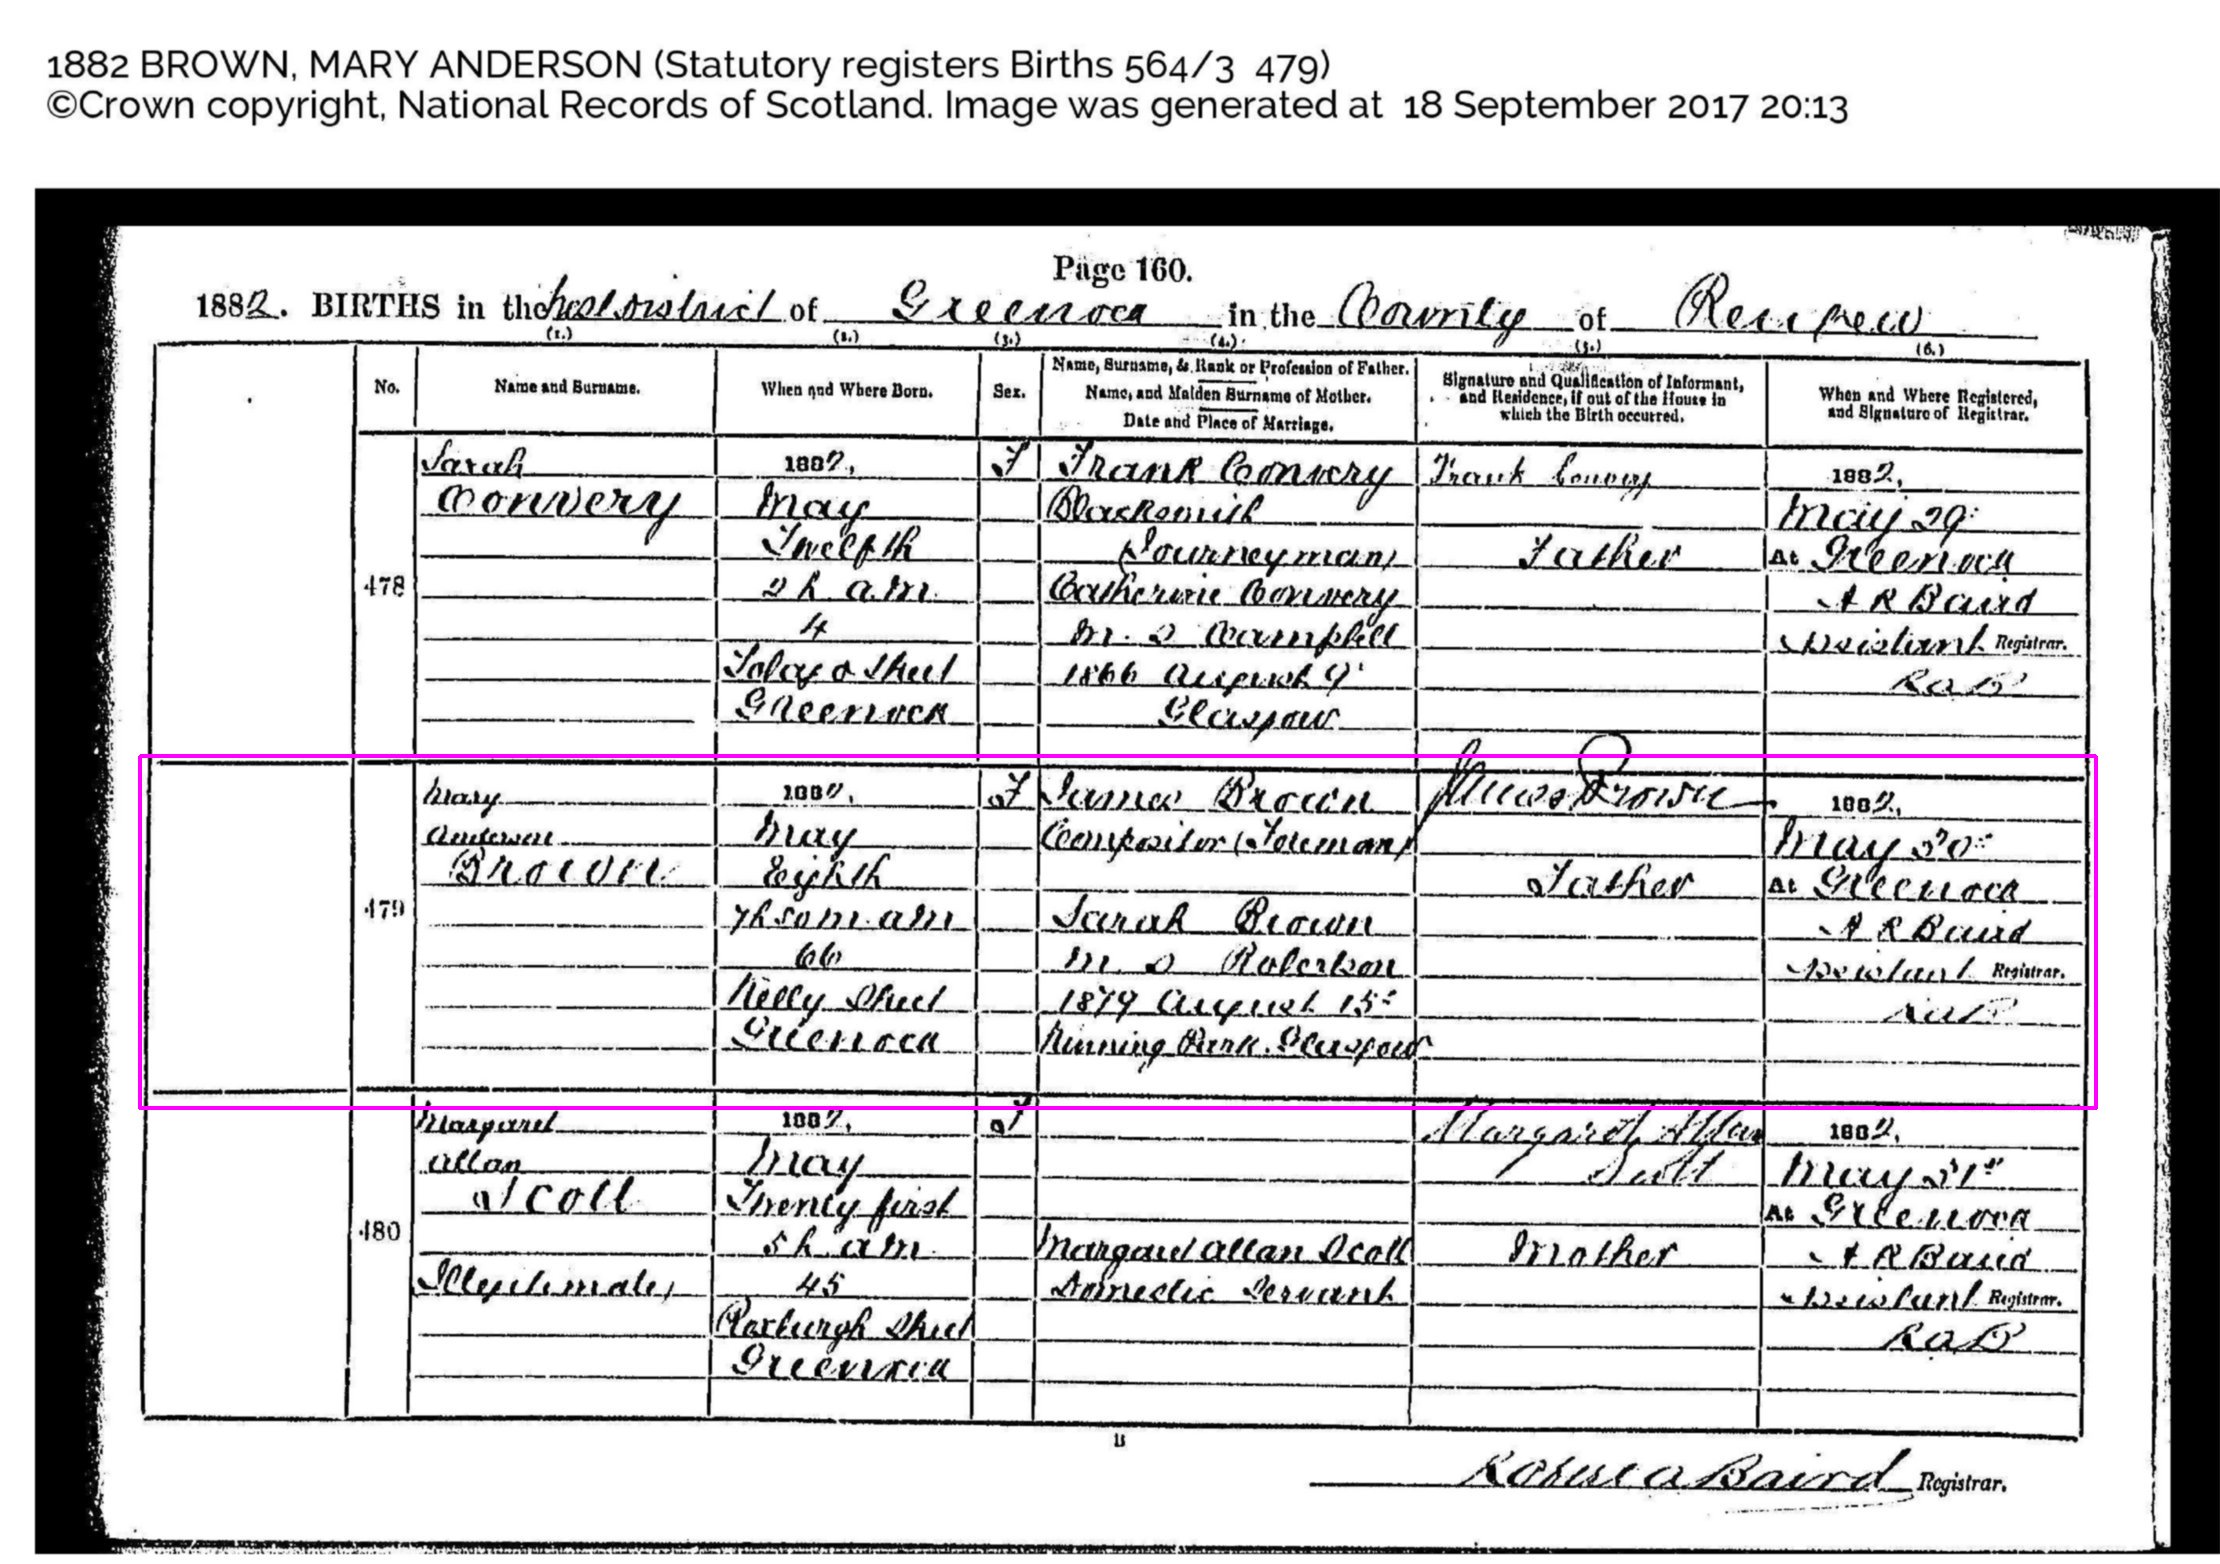 1882 BROWN, MARY ANDERSON (Statutory registers Births 564/3 479)
©Crown copyright, National Records of Scotland. Image was generated at 18 September 2017 20:13
Page 160.
1882. BIRTHS in the West District of Greenock in the County of Renfrew
(1.) (2.) (3.) (4.) (5.) (6.)
No.
Name and Surname.
When and Where Born.
Sex.
Name, Surname, & Rank or Profession of Father.
Name, and Maiden Surname of Mother.
Date and Place of Marriage.
Signature and Qualification of Informant,
and Residence, if out of the House in
which the Birth occurred.
When and Where Registered,
and Signature of Registrar.
478
Sarah
Convery
1882,
May
Twelfth
2 h. a.m.
4
Street
Greenock
F
Frank Convery
Blacksmith
(Journeyman)
Catherine Convery
m. s Campbell
1866 August 9
Glasgow
Frank Convery
Father
1882,
May 29
At Greenock
A R Baird
Assistant Registrar.
R a B
479
Mary
Anderson
Brown
1882,
May
Eighth
7h 50m a m
66
Kelly Street
Greenock
F
James Brown
Compositor (Foreman)
Sarah Brown
m. s Robertson
1879 August 15
Kinning Park. Glasgow
James Brown
Father
1882,
May 30
At Greenock
A R Baird
Assistant Registrar.
R a B
480
Margaret
Allan
Scott
Illegitimate)
1882,
May
Twenty first
5 h. a m.
45
Roxburgh Street
Greenock
F
Margaret Allan Scott
Domestic Servant
Margaret Allan
Scott
Mother
1882,
May 31st
At Greenock
A R Baird
Assistant Registrar.
R a B
B
Baird Registrar.